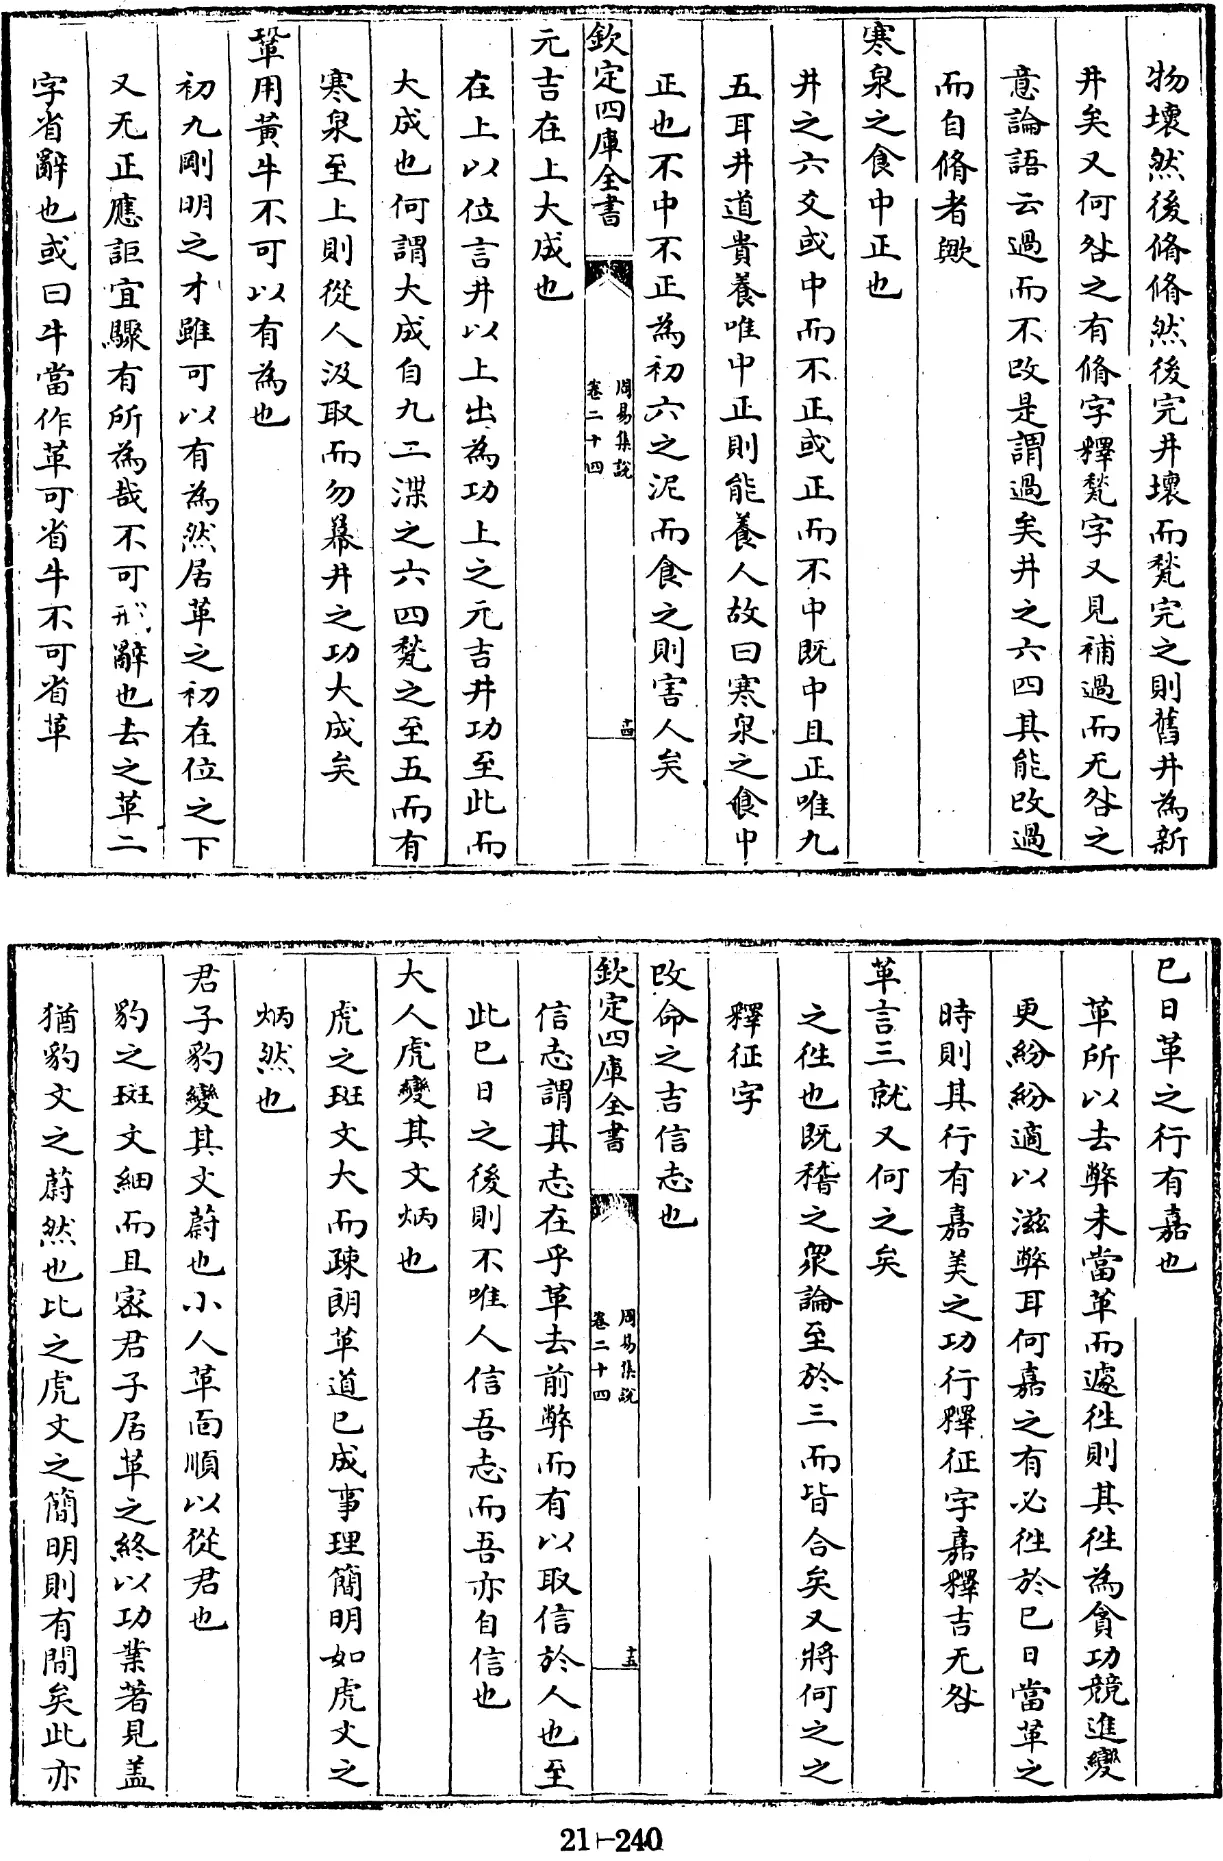 物壞然後脩脩然後完井壞而甃完之則舊井為新
井矣又何咎之有脩字釋甃字又見補過而无咎之
意論語云過而不改是謂過矣井之六四其能改過
而自脩者歟
寒泉之食中正也
井之六爻或中而不正或正而不中既中且正唯九
五耳井道貴養唯中正則能養人故曰寒泉之食中
正也不中不正為初六之泥而食之則害人矣
欽定四庫全書
周易集說
卷二十四
十四
元吉在上大成也
在上以位言井以上出為功上之元吉井功至此而
大成也何謂大成自九二渫之六四甃之至五而有
寒泉至上則從人汲取而勿幕井之功大成矣
鞏用黃牛不可以有為也
初九剛明之才雖可以有為然居革之初在位之下
又无正應詎宜驟有所為哉不可形辭也去之革二
字省辭也或曰牛當作革可省牛不可省革
巳日革之行有嘉也
革所以去弊未當革而遽徃則其徃為貪功競進變
更紛紛適以滋弊耳何嘉之有必徃於巳日當革之
時則其行有嘉美之功行釋征字嘉釋吉无咎
革言三就又何之矣
之徃也既稽之衆論至於三而皆合矣又將何之之
釋征字
改命之吉信志也
欽定四庫全書
周易集說
卷二十四
十五
信志謂其志在乎革去前弊而有以取信於人也至
此巳日之後則不唯人信吾志而吾亦自信也
大人虎變其文炳也
虎之斑文大而疎朗革道已成事理簡明如虎文之
炳然也
君子豹變其文蔚也小人革面順以從君也
豹之斑文細而且宻君子居革之終以功業著見盖
猶豹文之蔚然也比之虎文之簡明則有間矣此亦
21-240